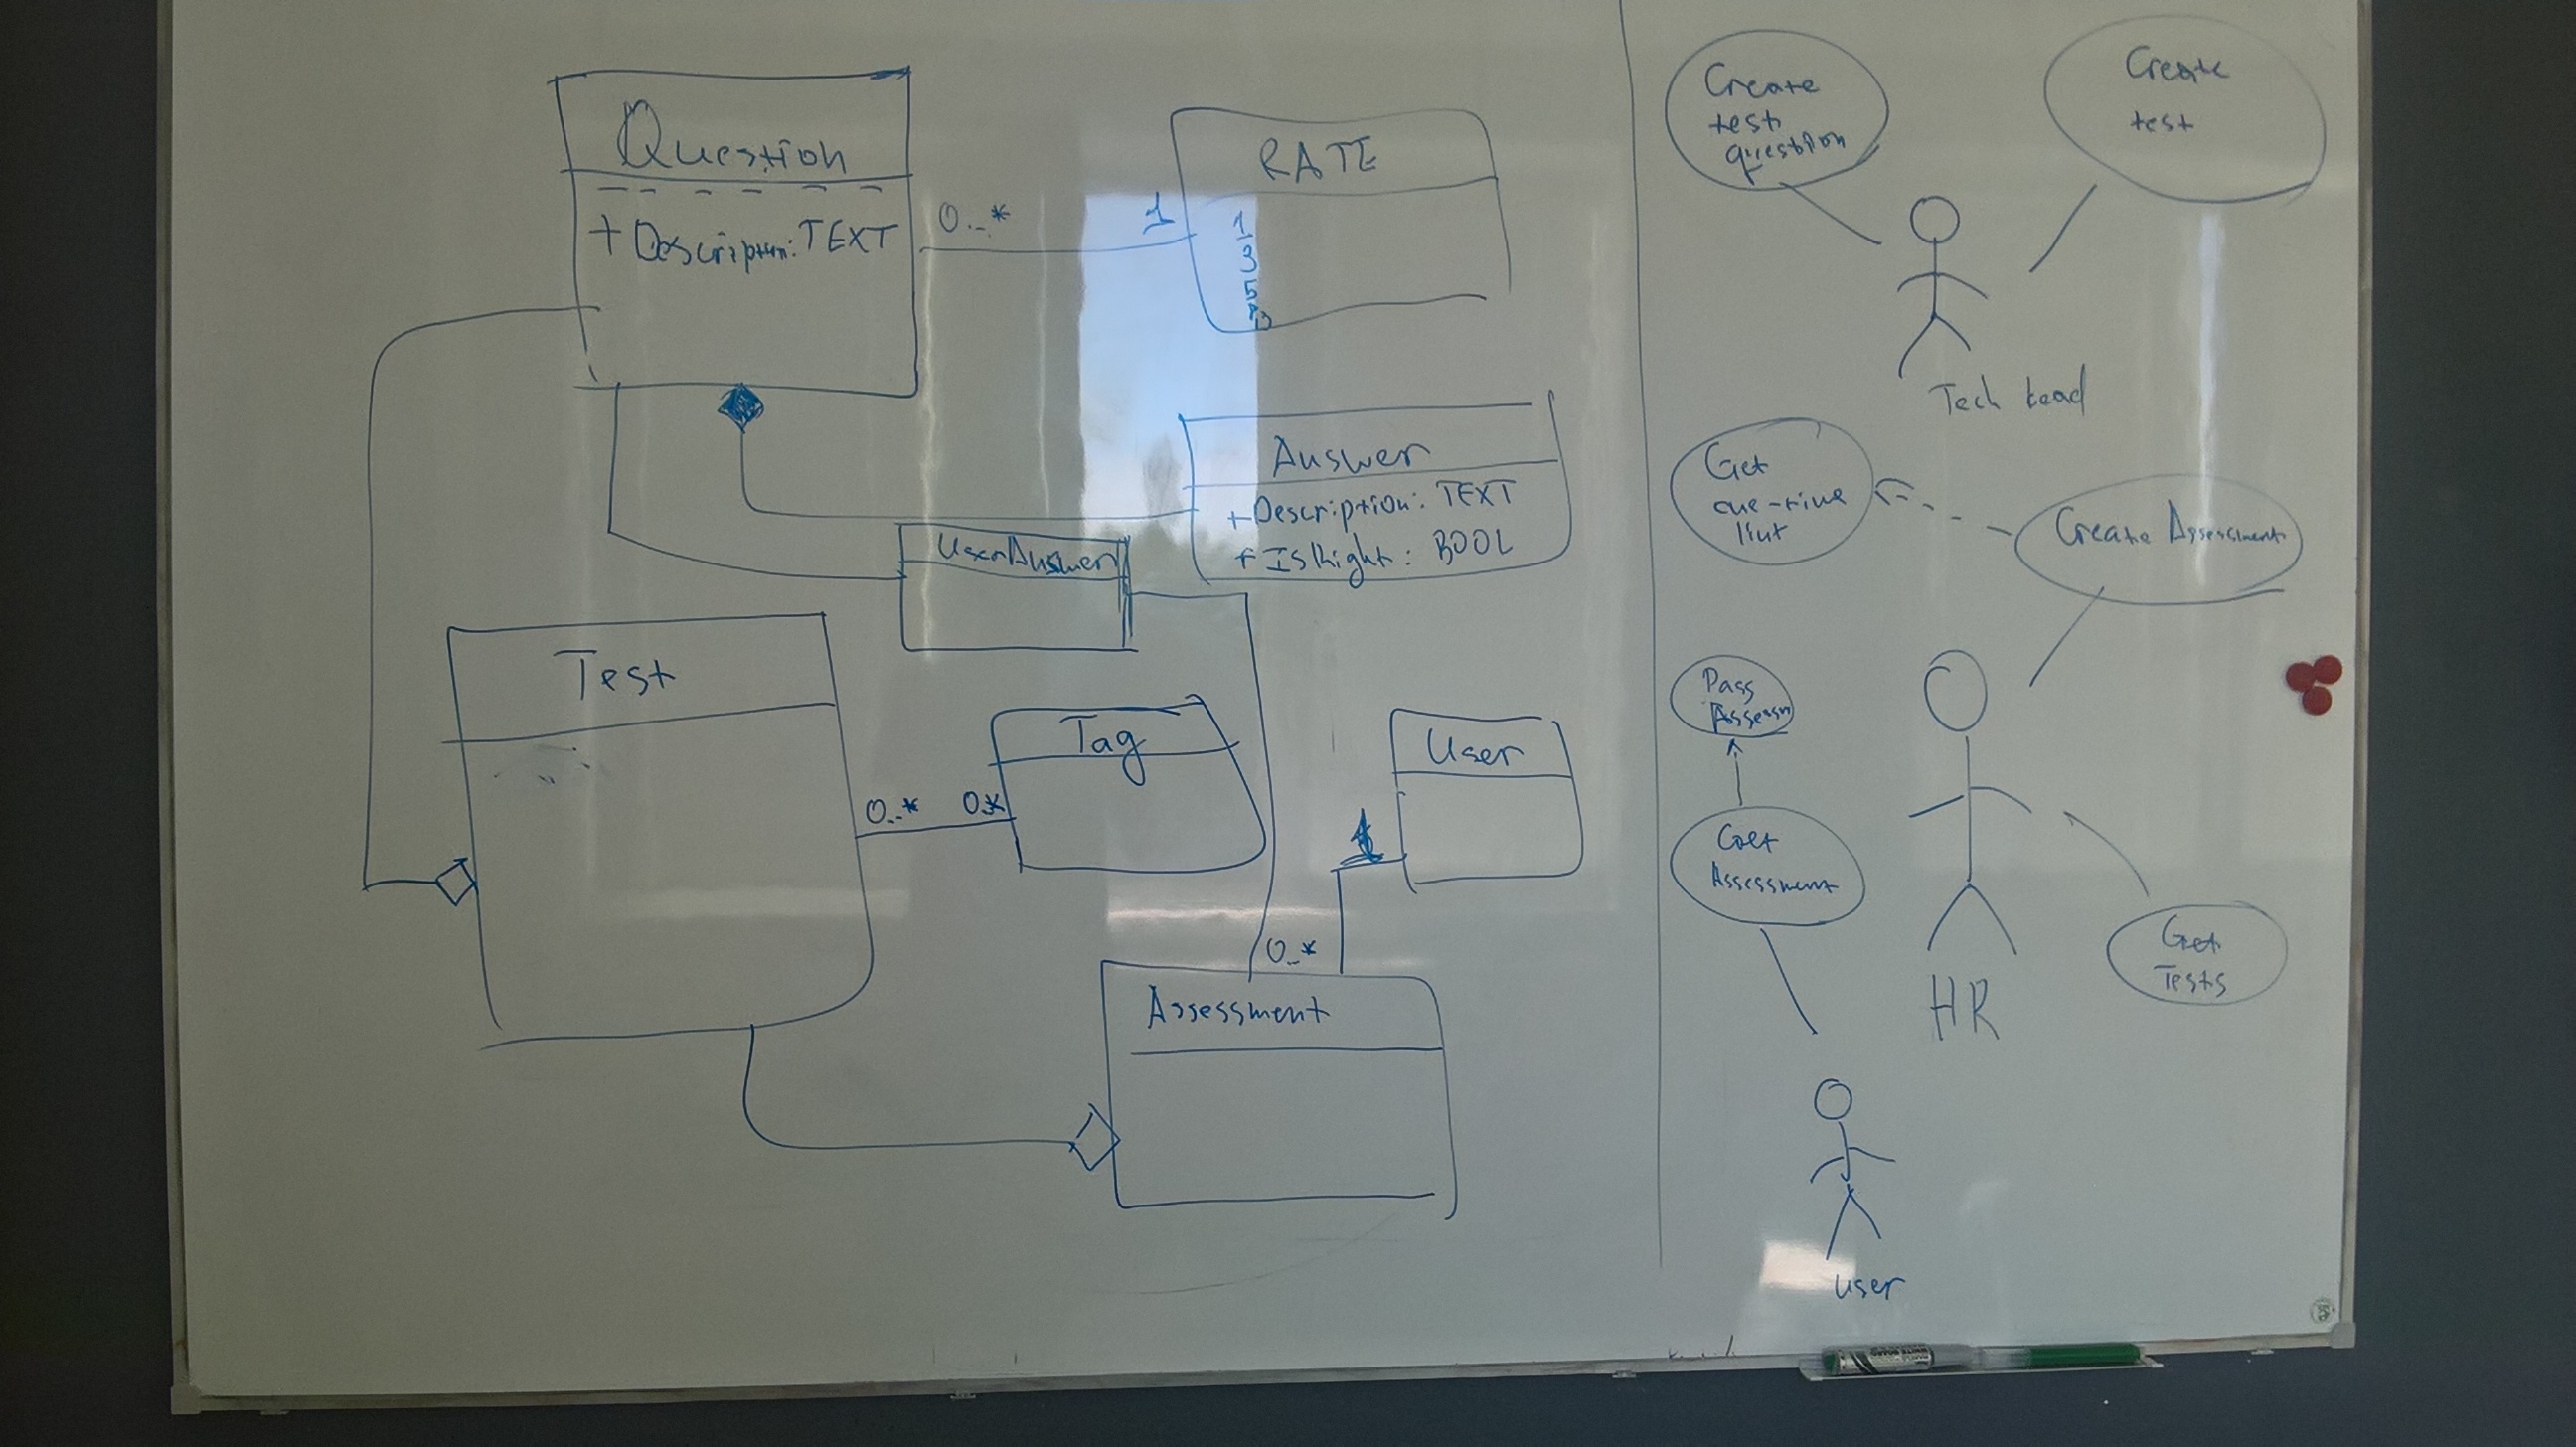 Question
+ Description: TEXT
0..*
1
RATE
1
3
5
Answer
+Description: TEXT
+ IsRight: BOOL
UserAnswer
Test
0..*
0.*
Tag
User
1
0..*
Assessment
Create
test
question
Create
test
Tech Lead
Get
one-time
Create Assessment
Pass
Assessm
Get
Assessment
HR
Get
Tests
user